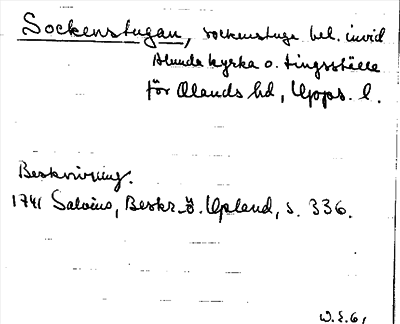 Sockenstugan, sockenstuga bel. invid
Alunda kyrka o. tingsställe
för Olands hd, Upps. l.
Beskrivning.
1741 Salvius, Beskr. ö. Upland, s. 336.
W.E. 61